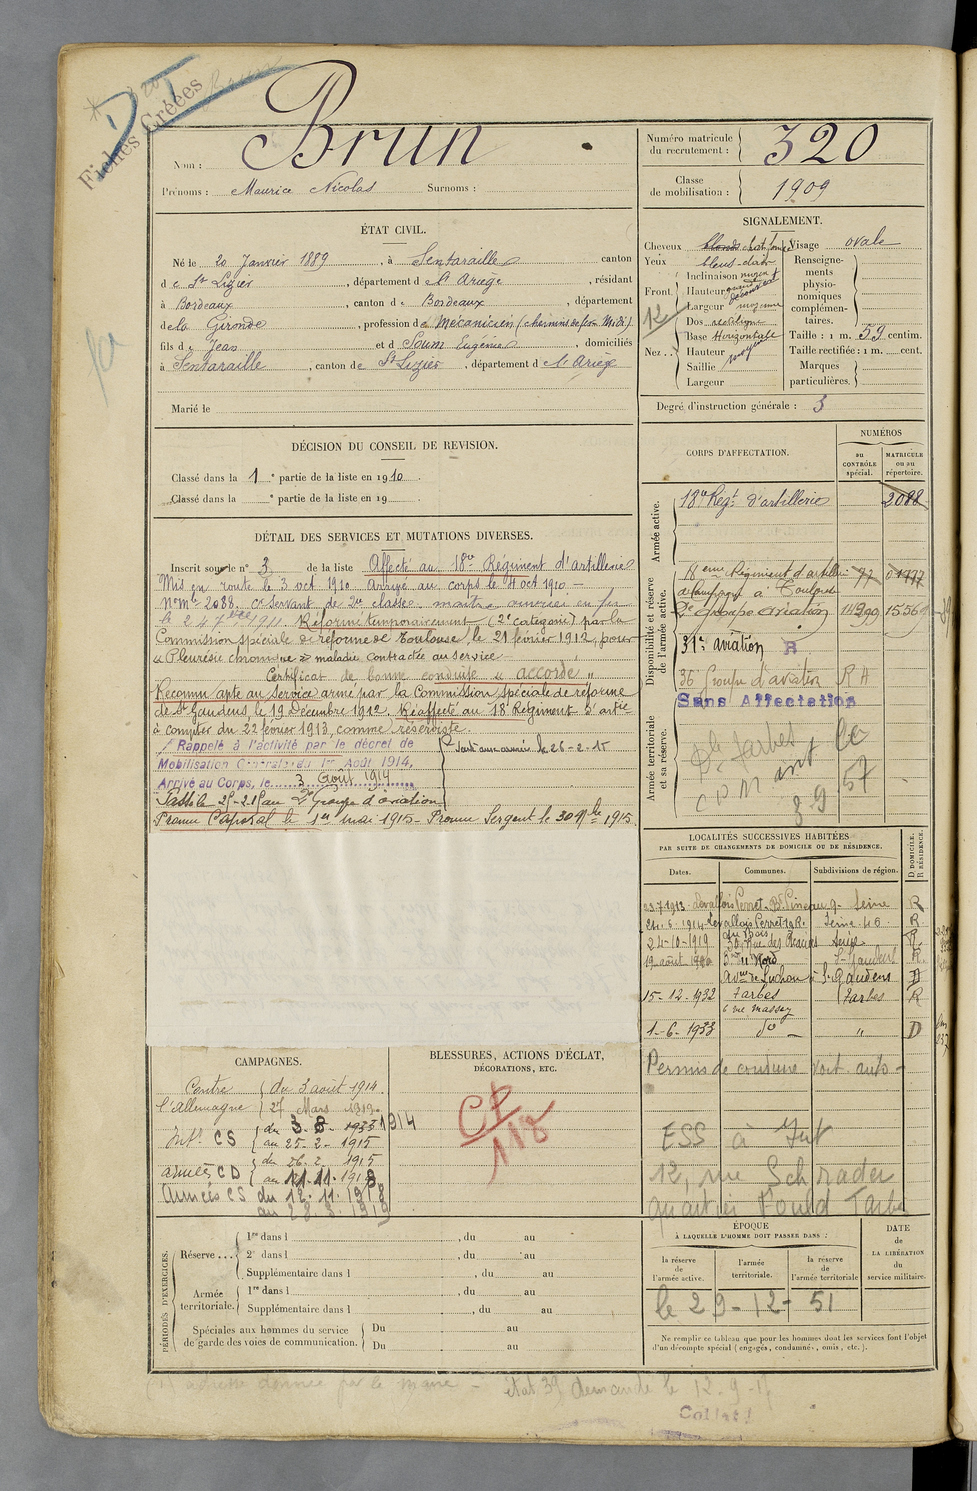 Fiches Créées
Nom : Brun
Prénoms : Maurice Nicolas Surnoms :
Numéro matricule du recrutement : 320
Classe de mobilisation : 1909
ÉTAT CIVIL.
Né le 20 Janvier 1889, à Sentaraille canton
de St Lizier, département de l'Ariège, résidant
à Bordeaux, canton de Bordeaux, département
de la Gironde, profession de Mécanicien (chemins de fer Midi)
fils de Jean et de Soum Eugénie, domiciliés
à Sentaraille, canton de St Lizier, département de l'Ariège
Marié le
SIGNALEMENT.
Cheveux blonds chat. foncé Visage ovale
Yeux bleus-clair
Front Inclinaison moyen
Hauteur grande
découvert
Largeur moyenne
12
Nez Dos rectiligne
Base Horizontale
Hauteur moyen
Saillie
Largeur
Renseignements physionomiques complémentaires.
Taille : 1 m. 59 centim.
Taille rectifiée : 1 m. cent.
Marques particulières.
Degré d'instruction générale : 3
DÉCISION DU CONSEIL DE REVISION.
Classé dans la 1e partie de la liste en 1910.
Classé dans la e partie de la liste en 19 .
DÉTAIL DES SERVICES ET MUTATIONS DIVERSES.
Inscrit sous le n° 3 de la liste Affecté au 18e Régiment d'artillerie
Mis en route le 3 oct 1910 Arrivé au corps le 4 oct 1910 —
N° Mle 2088. Cr Servant de 2e classe. ouvrier en fer
le 24 7bre 1911. Réformé temporairement (2e catégorie) par la
Commission spéciale de réforme de Toulouse le 21 février 1912, pour
"Pleurésie chronique" maladie contractée au service
Certificat de bonne conduite "accordé"
Reconnu apte au Service armé par la Commission spéciale de réforme
de St Gaudens, le 19 Décembre 1912. Réaffecté au 18e Régiment d'artie
à compter du 22 février 1913, comme réserviste.
Rappelé à l'activité par le décret de
Mobilisation Générale du 1er Août 1914,
Arrivé au Corps, le 3 Août 1914
le 26-2-15
Passé le au 2e Groupe d'aviation
Promu Caporal le 1er mai 1915 — Promu Sergent le 30 1915.
CORPS D'AFFECTATION.
NUMÉROS
au CONTRÔLE spécial.
MATRICULE ou au répertoire.
Armée active.
18e Régt d'artillerie 2088
Disponibilité et réserve de l'armée active.
18eme Régiment d'artillerie 77 01777
de campagne à Toulouse
2e groupe aviation 14999 15569
31e aviation R
36e Groupe d'aviation R A
Sans Affectation
Armée territoriale et sa réserve.
Dt Tarbes
CDM art
8 9 57
LOCALITÉS SUCCESSIVES HABITÉES
PAR SUITE DE CHANGEMENTS DE DOMICILE OU DE RÉSIDENCE.
D DOMICILE. R RÉSIDENCE.
Dates. Communes. Subdivisions de région.
23.7.1913 Levallois Perret Seine R
24.6.1914 Levallois Perret 19 R. Seine R
du Bois
24-10-1919 30, Rue des R
19 août 3 rue du Nord St Gaudens R
Avue de Luchon St Gaudens D
15-12-1932 Tarbes Tarbes R
6 rue Massey
1-6-1933 do — " D
Permis de conduire voit. auto —
ESS à Fut
12, rue Schrader
quartier Fould Tarbes
CAMPAGNES.
Contre du 3 août 1914
l'Allemagne 27 Mars 1919
Intr CS du 3-8-1914
au 25-2-1915
Armées CD du 26-2 1915
au 11.11.1918
Armées CS du 12.11.1918
au 28.8.1919
BLESSURES, ACTIONS D'ÉCLAT,
DÉCORATIONS, ETC.
CP
118
PÉRIODES D'EXERCICES.
Réserve... 1re dans l , du au
2e dans l , du au
Supplémentaire dans l , du au
Armée territoriale. 1re dans l , du au
Supplémentaire dans l , du au
Spéciales aux hommes du service de garde des voies de communication. Du au
Du au
ÉPOQUE
À LAQUELLE L'HOMME DOIT PASSER DANS :
la réserve de l'armée active.
l'armée territoriale.
la réserve de l'armée territoriale
DATE de LA LIBÉRATION du service militaire.
le 29-12-51
Ne remplir ce tableau que pour les hommes dont les services font l'objet
d'un décompte spécial (engagés, condamnés, omis, etc.).
(1) adresse donnée par le Maire — état demandé le 12-9-